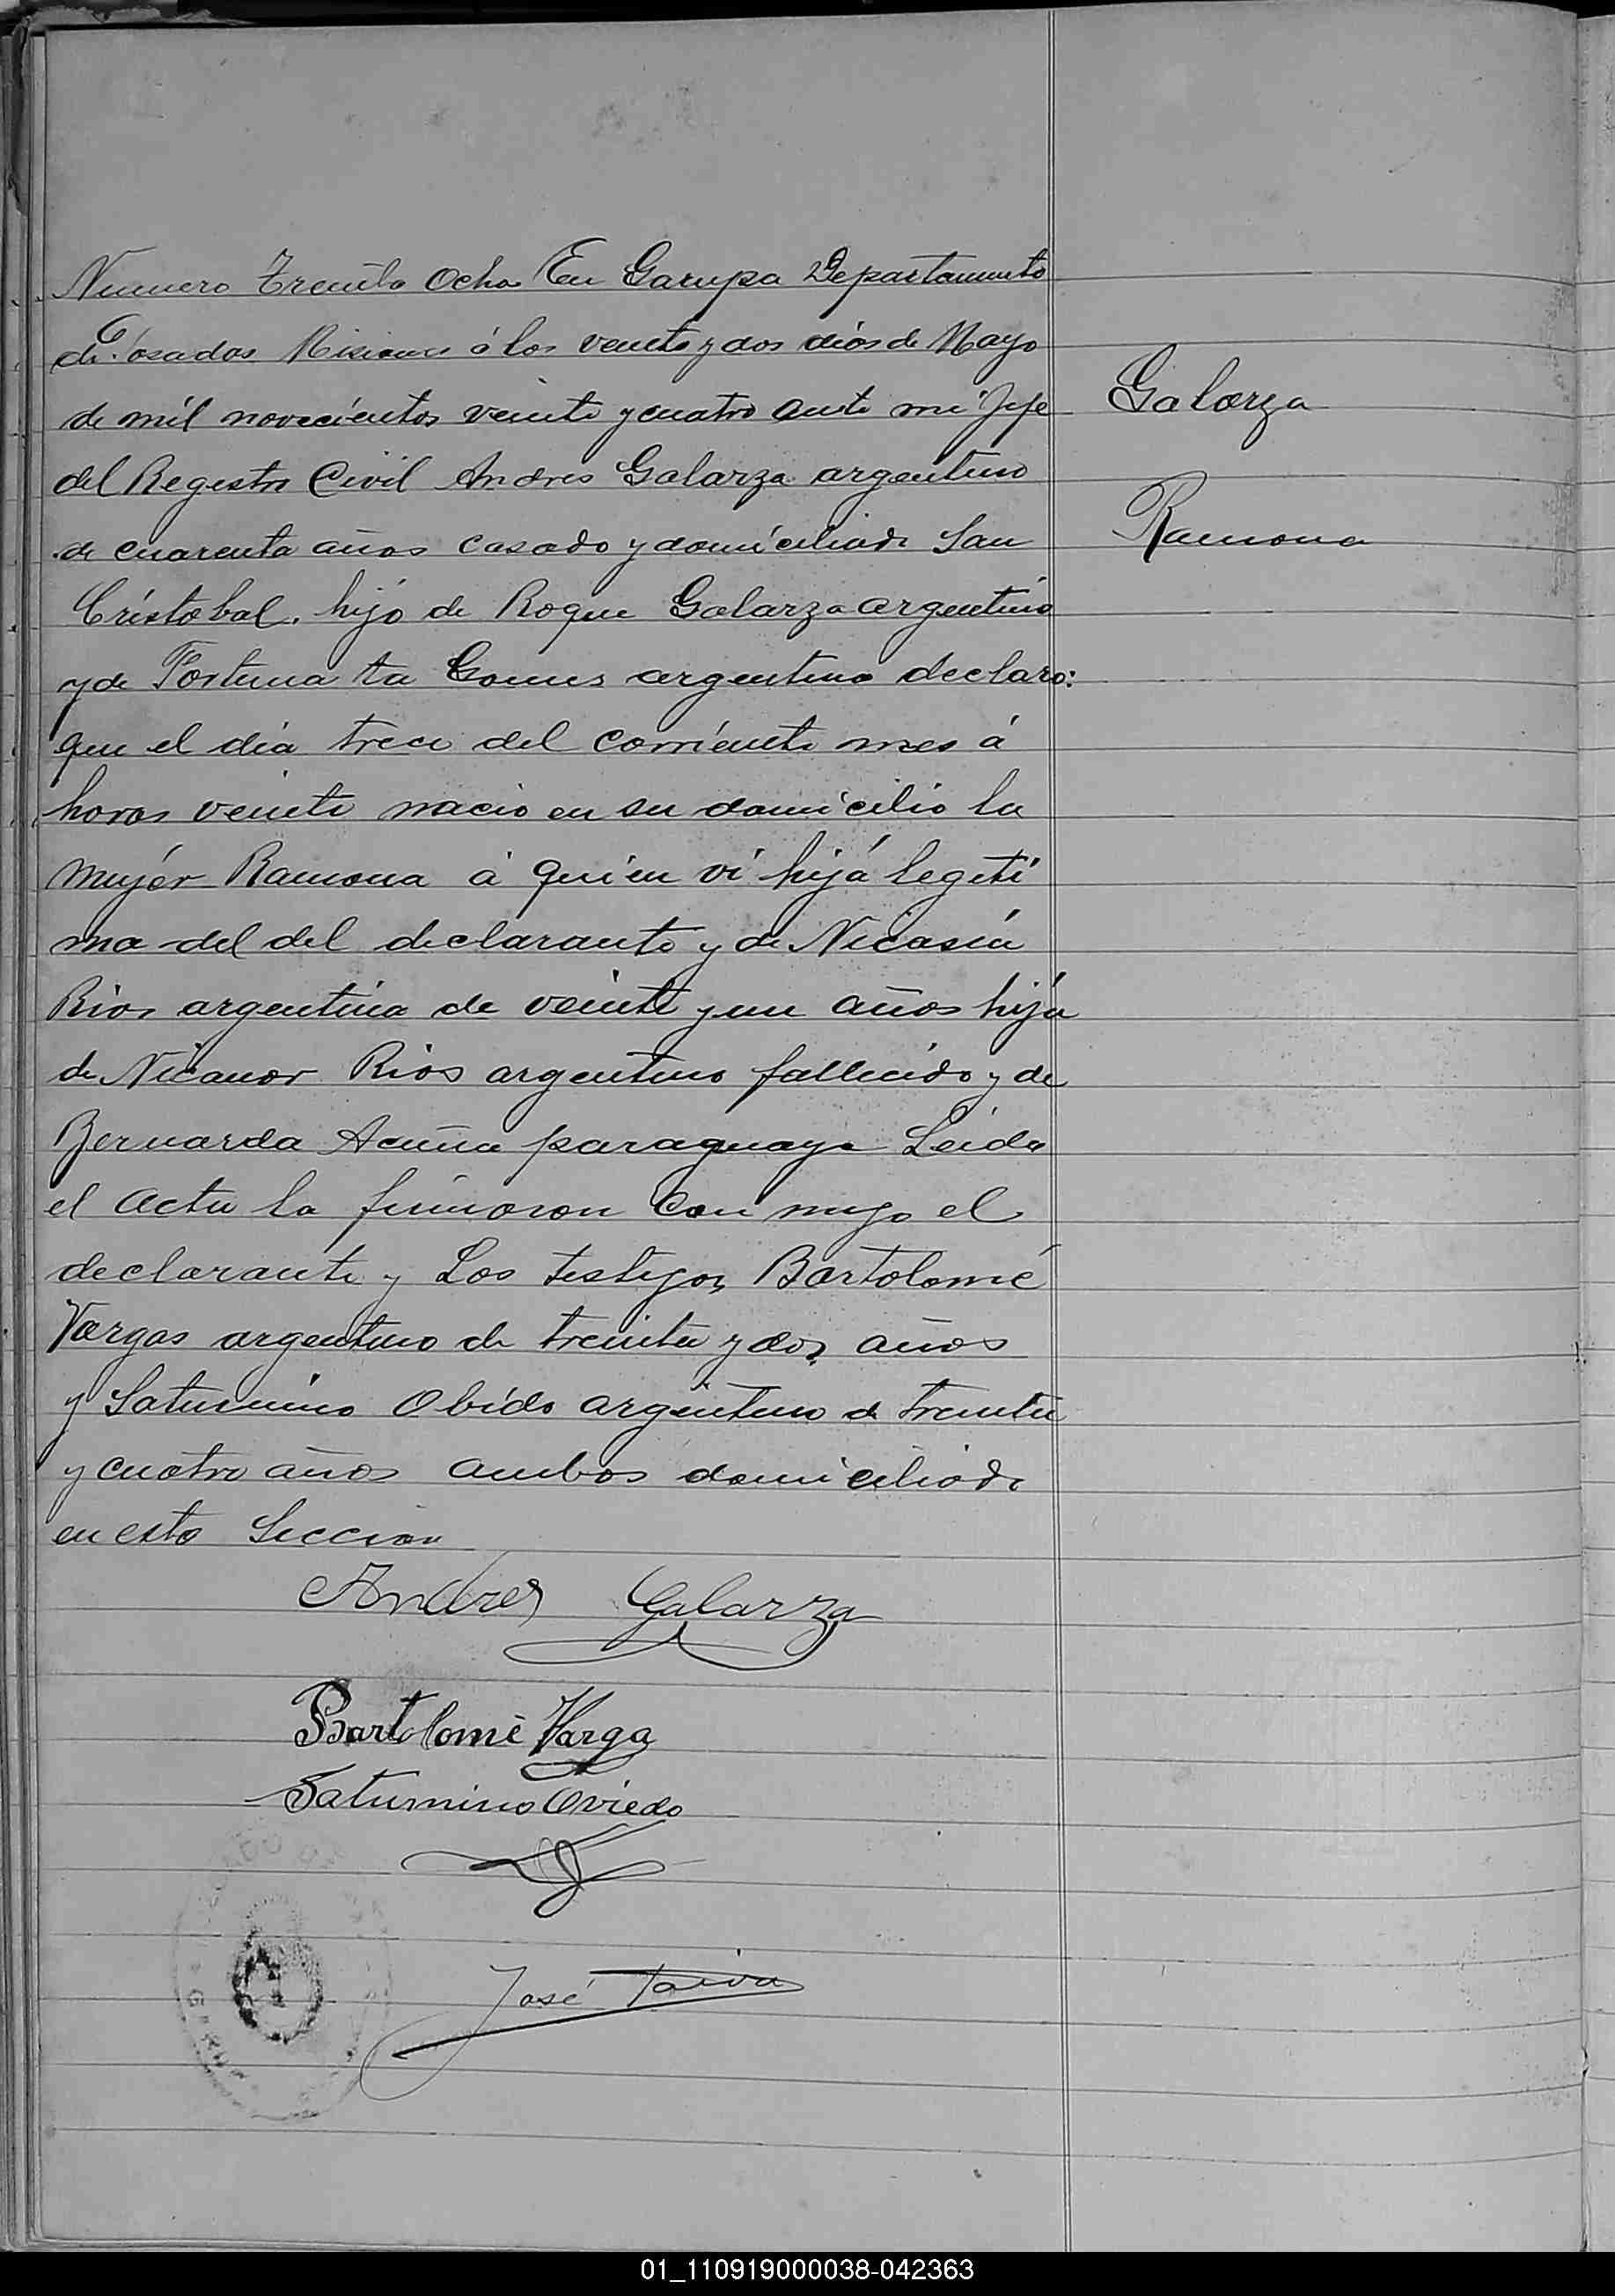 Numero Treinta Ocho En Garupa Departamento
de Posadas Misiones á los veinte y dos dias de Mayo
de mil novecientos veinte y cuatro ante mi Jefe
del Registro Civil Andres Galarza argentino
de cuarenta años casado y domiciliado San
Cristobal. hijo de Roque Galarza argentino
y de Fortuna ta Gomes argentina declaro:
que el dia trece del corriente mes á
horas veinte nacio en su domicilio la
mujer Ramona á quien vi hija legiti
ma del del declarante y de Nicasia
Rios argentina de veinte y un años hija
de Nicanor Rios argentino fallecido y de
Bernarda Acuña paraguaya Leida
el acta la firmaron con migo el
declarante y Los testigos Bartolomé
Vargas argentino de treinta y dos años
y Saturnino Obido argentino de treinta
y cuatro años ambos domiciliado
en esta Seccion
Galarza
Ramona
Andres Galarza
Bartolomé Varga
Saturnino Oviedo
José Paiva
01_110919000038-042363